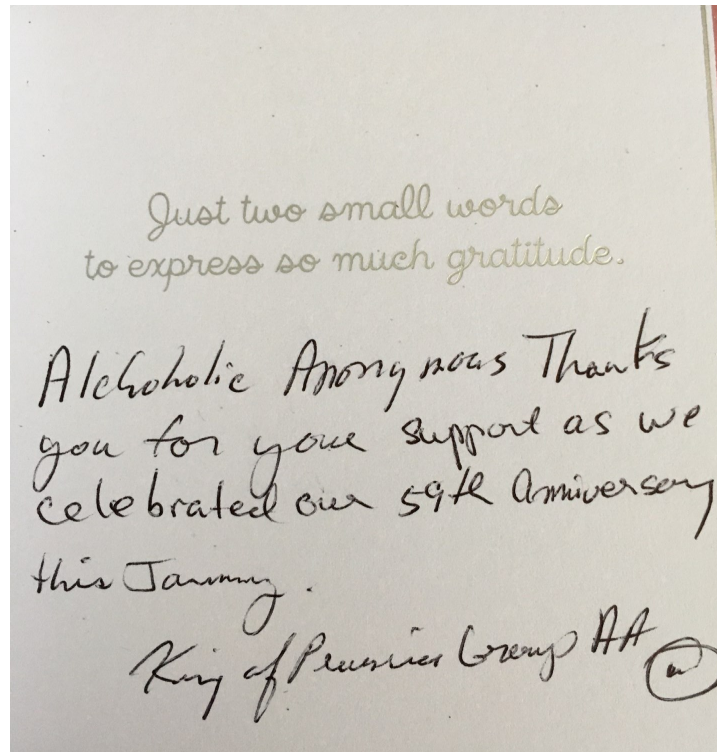 Just two small words
to express so much gratitude.
Alchoholic Anonymous Thanks
you for your support as we
celebrated our 59th Anniversary
this January.
King of Prussia Group AA